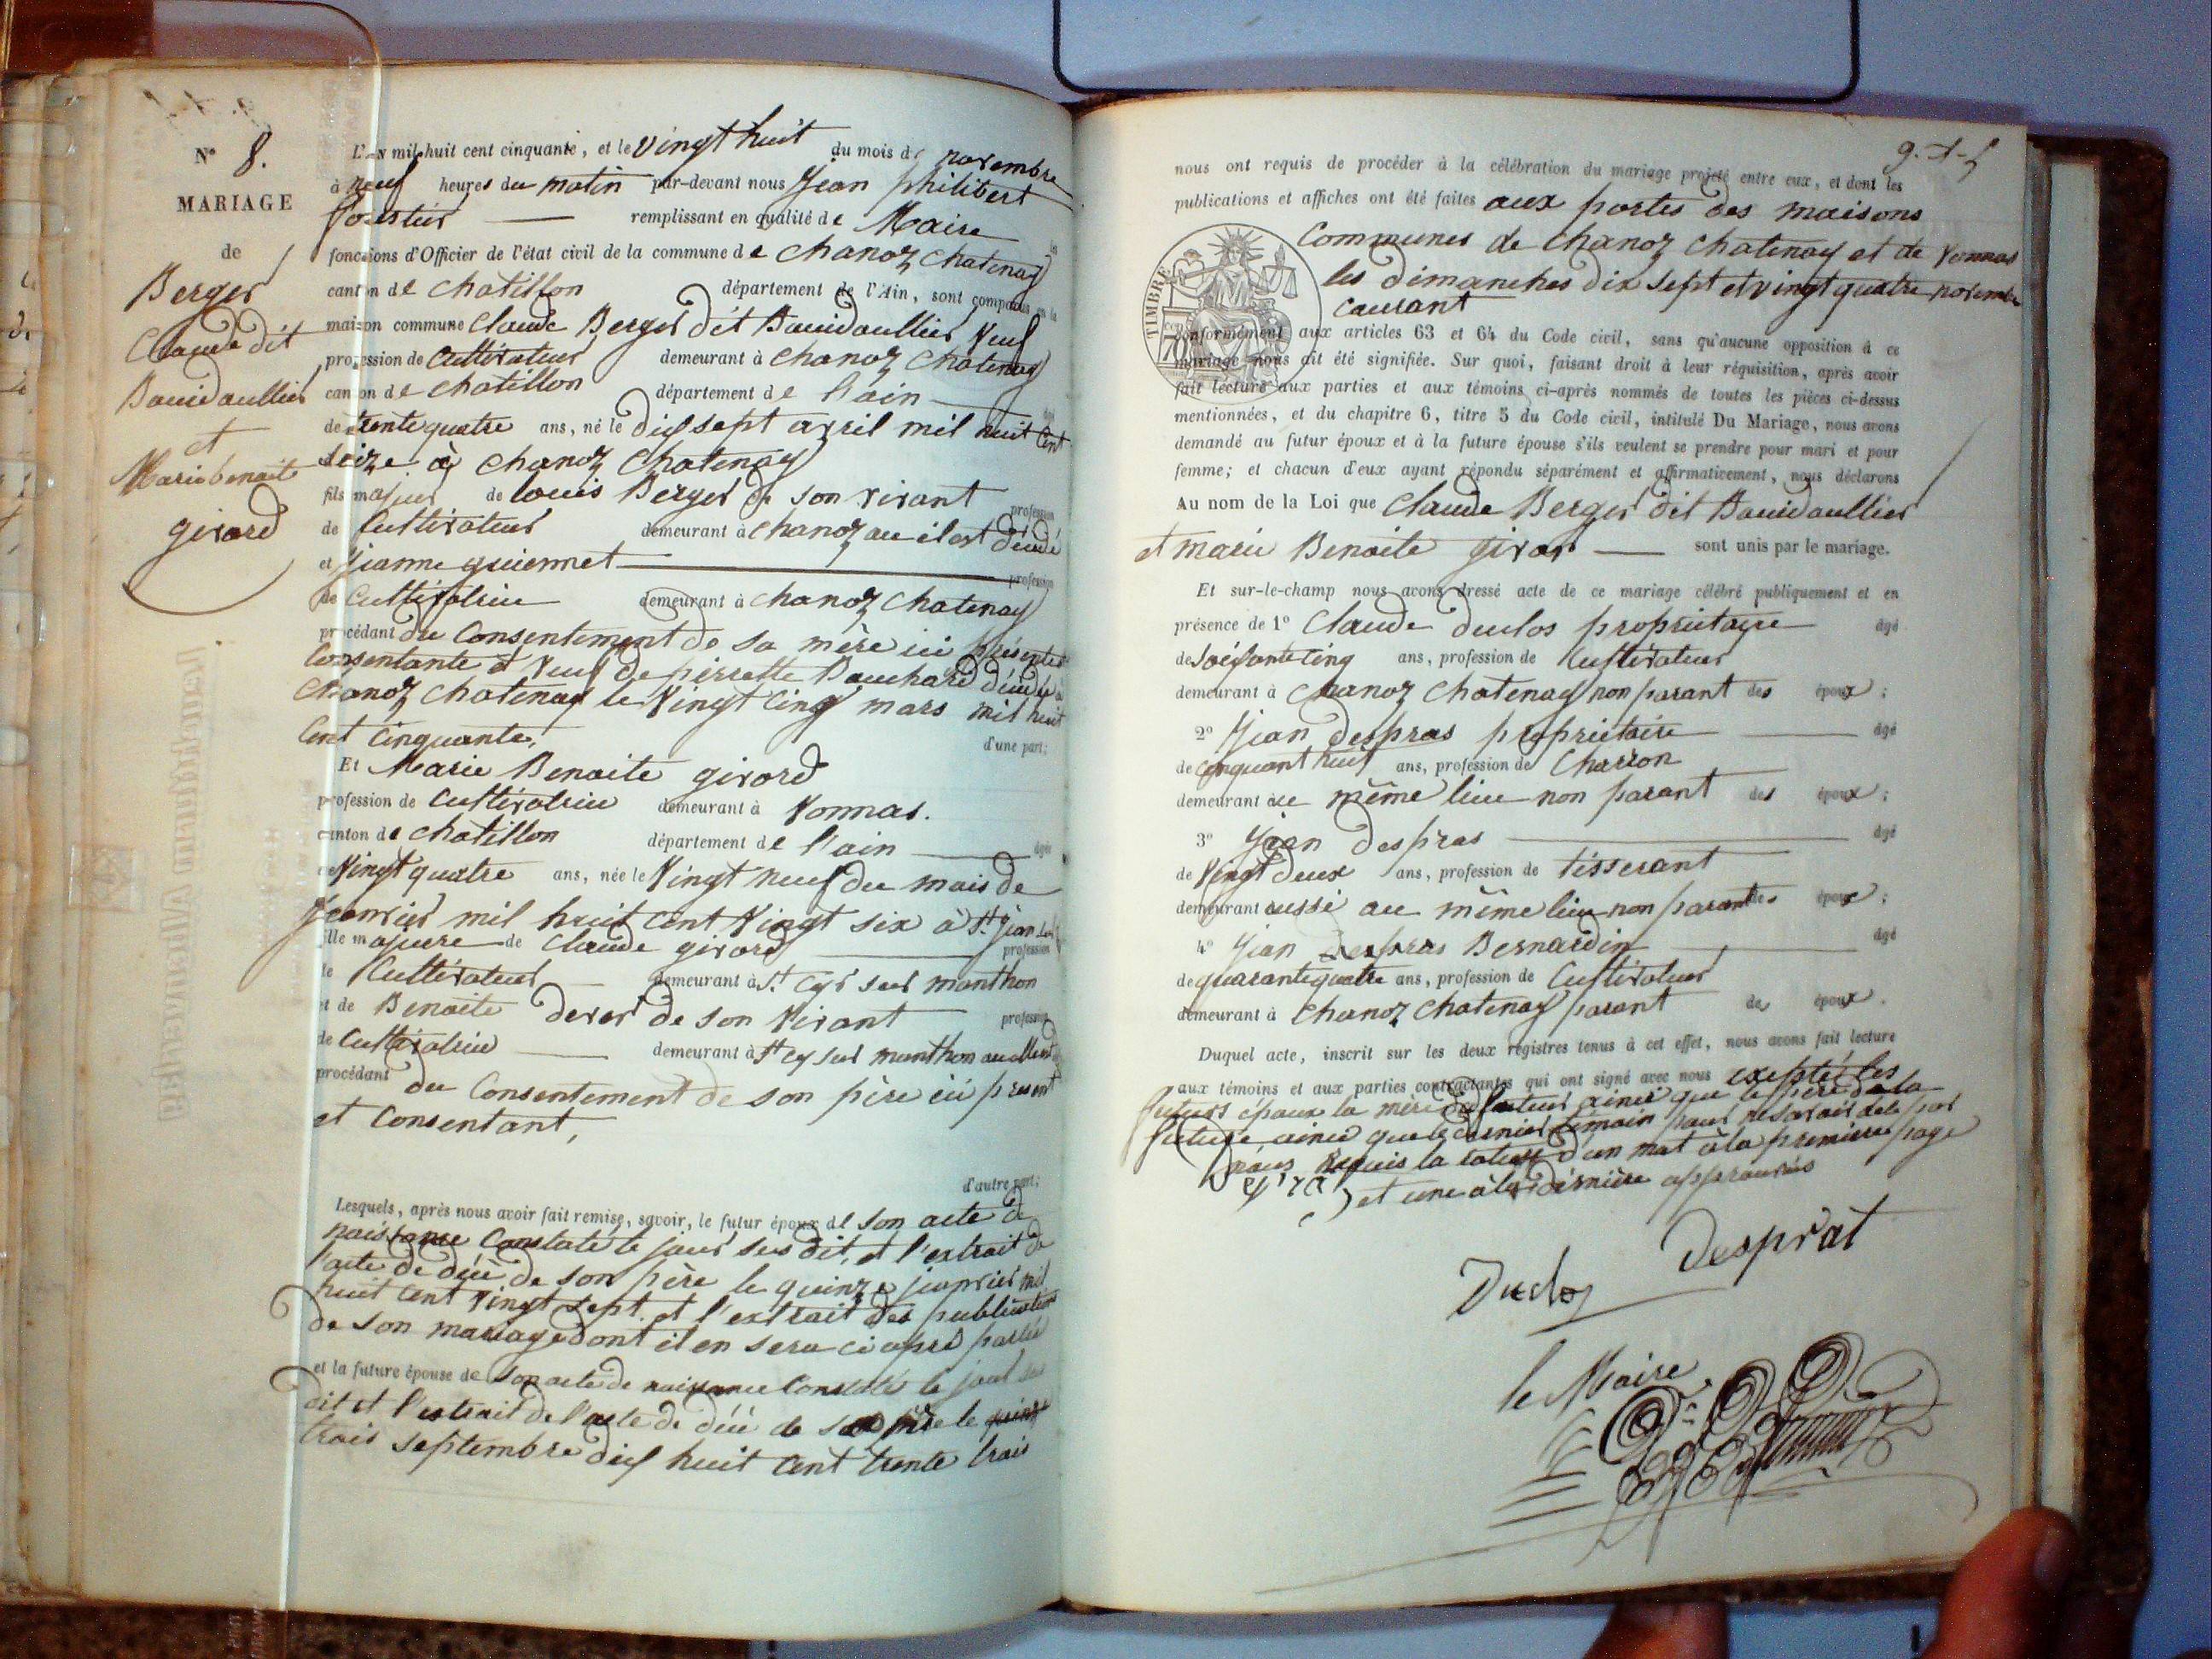 N° 8.
MARIAGE
de
Berger
Claude dit
Bouidaullier
et
Marie benoite
girard
L'AN mil huit cent cinquante, et le vingt huit du mois de novembre
à neuf heures du matin par-devant nous Jean philibert
remplissant en qualité de Maire les
fonctions d'Officier de l'état civil de la commune de chanoz chatenay
canton de chatillon département de l'Ain, sont comparus en la
maison commune Claude Berger dit Bouidaullier veuf
profession de Cultivateur demeurant à chanoz chatenay
canton de chatillon département de l'ain âgé
de trente quatre ans, né le dix sept avril mil huit cent
seize à chanoz chatenay
fils majeur de louis Berger de son vivant profession
de Cultivateur demeurant à chanoz au il est décédé
et Jeanne guiennet profession
de Cultivatrice demeurant à chanoz chatenay
procédant du Consentement de sa mère ici présente
Consentante et veuf de pierrette Bouchard décédée à
chanoz chatenay le vingt cinq mars mil huit
Cent Cinquante, d'une part;
Et Marie Benoite girard
profession de Cultivatrice demeurant à Vonnas.
canton de chatillon département de l'ain âgée
de vingt quatre ans, née le vingt neuf du mois de
Janvier mil huit cent vingt six à St. Jean
fille majeure de Claude girard profession
de Cultivateur demeurant à St. Cyr sur manthon
et de Benoite de son vivant profession
de Cultivatrice demeurant à St Cyr sur manthon
procédant du Consentement de son père ici présent
et Consentant,
d'autre part;
Lesquels, après nous avoir fait remise, savoir, le futur époux de son acte de
naissance Constaté le jour sus dit, et l'extrait de
l'acte de décè de son père le quinze janvier mil
huit cent vingt sept et l'extrait des publications
de son mariage dont il en sera ci apré parlé
et la future épouse de son acte de naissance Constaté le jour sus
dit et l'extrait de l'acte de décè de sa mère le quinze
trois septembre dix huit cent trente trois
nous ont requis de procéder à la célébration du mariage projeté entre eux, et dont les
publications et affiches ont été faites aux portes des maisons
Communes de chanoz chatenay et de Vonnas
les dimanches dix sept et vingt quatre novembre
courant
TIMBRE
conformément aux articles 63 et 64 du Code civil, sans qu'aucune opposition à ce
mariage nous ait été signifiée. Sur quoi, faisant droit à leur réquisition, après avoir
fait lecture aux parties et aux témoins ci-après nommés de toutes les pièces ci-dessus
mentionnées, et du chapitre 6, titre 5 du Code civil, intitulé Du Mariage, nous avons
demandé au futur époux et à la future épouse s'ils veulent se prendre pour mari et pour
femme; et chacun d'eux ayant répondu séparément et affirmativement, nous déclarons
Au nom de la Loi que Claude Berger dit Bouidaullier
et marie Benoite girard sont unis par le mariage.
Et sur-le-champ nous avons dressé acte de ce mariage célébré publiquement et en
présence de 1° Claude duclos propriétaire âgé
de Soixante cinq ans, profession de Cultivateur
demeurant à chanoz chatenay non parant des époux;
2° Jean despras propriétaire âgé
de cinquant huit ans, profession de Charron
demeurant au même lieu non parant des époux;
3° Jean despras âgé
de vingt deux ans, profession de tisserant
demeurant aussi au même lieu non parant des époux;
4° Jean despras Bernardin âgé
de quarante quatre ans, profession de Cultivateur
demeurant à chanoz chatenay parant de époux.
Duquel acte, inscrit sur les deux registres tenus à cet effet, nous avons fait lecture
aux témoins et aux parties contractantes qui ont signé avec nous excepté les
futurs époux la mère du futur ainci que le père de la
future ainci que le dernier témoin pour ne savoir de le par
nous requis la rature d'un mot à la première page
et une à la dernière approuvés
Duclos
Desprat
le Maire